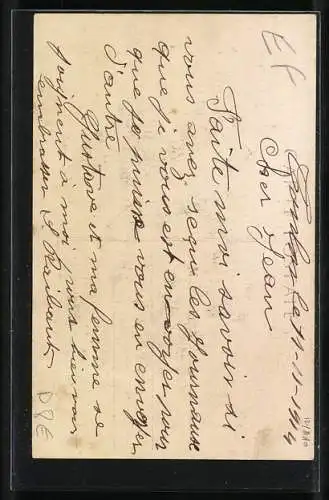 le 11-11-1914
Cher Jean
Faite moi savoir si
vous avez reçue les journeaux
que je vous est envoyer pour
que je puisse vous en envoyer
d'autre
Gustave et ma femme se
joigment à moi pour bien vous
embrasser
D8E